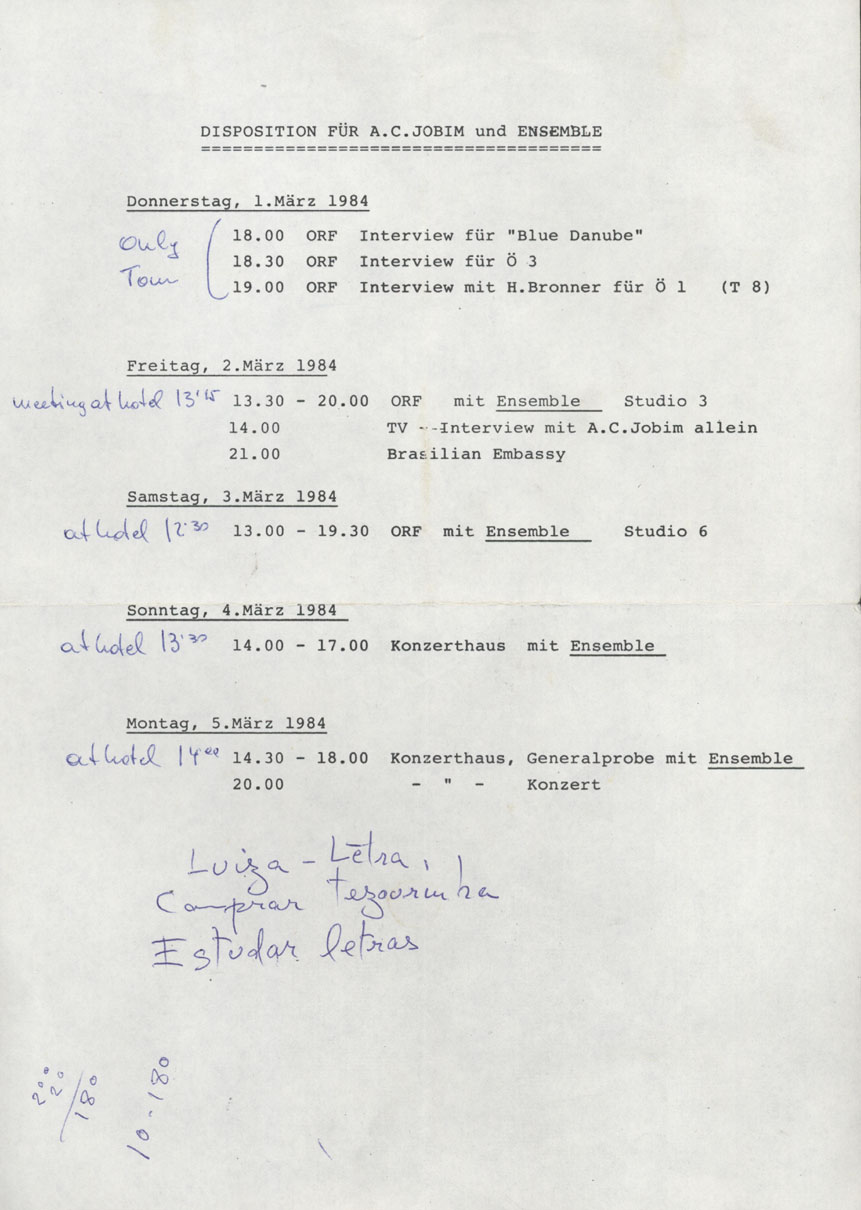 DISPOSITION FÜR A.C.JOBIM und ENSEMBLE
======================================
Donnerstag, 1.März 1984
Only Tom
18.00 ORF Interview für "Blue Danube"
18.30 ORF Interview für Ö 3
19.00 ORF Interview mit H.Bronner für Ö 1 (T 8)
Freitag, 2.März 1984
meeting at hotel 13'15 13.30 - 20.00 ORF mit Ensemble Studio 3
14.00 TV --Interview mit A.C.Jobim allein
21.00 Brasilian Embassy
Samstag, 3.März 1984
at hotel 12.30 13.00 - 19.30 ORF mit Ensemble Studio 6
Sonntag, 4.März 1984
at hotel 13'30 14.00 - 17.00 Konzerthaus mit Ensemble
Montag, 5.März 1984
at hotel 14°° 14.30 - 18.00 Konzerthaus, Generalprobe mit Ensemble
20.00 - " - Konzert
Luiza - Letra,
Comprar tezourinha
Estudar letras
/180
10 - 180